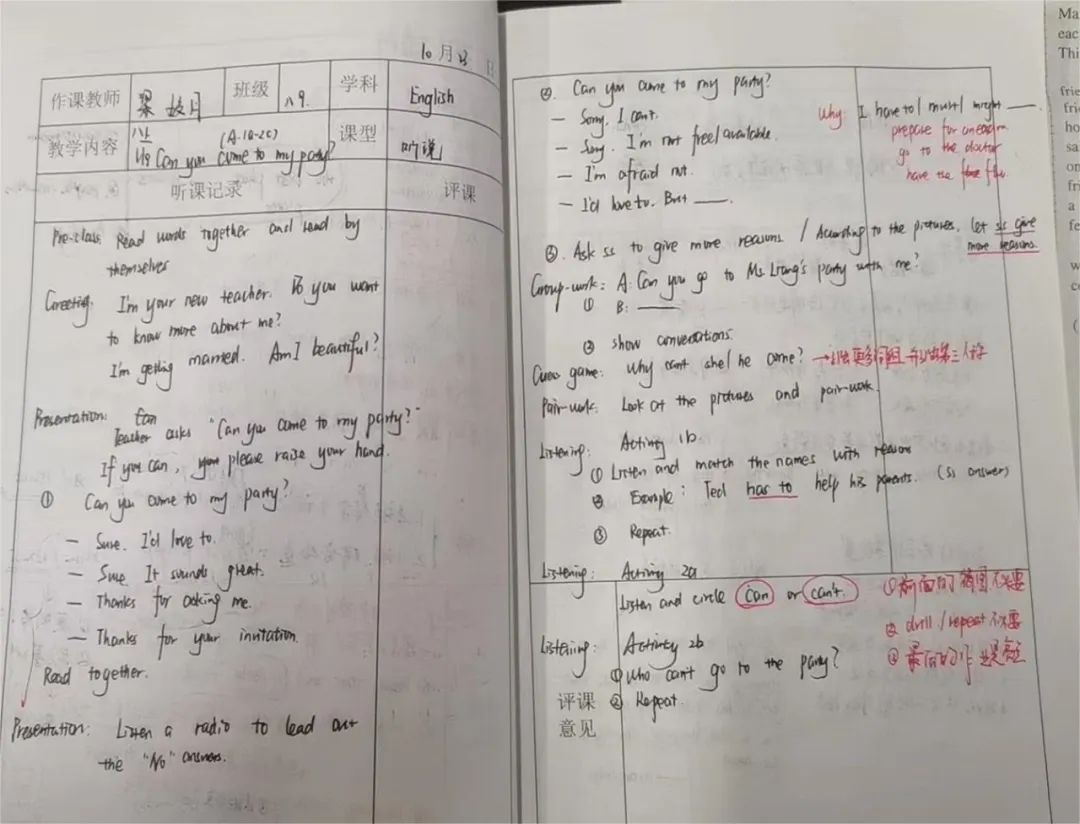 10月23日
作课教师
梁 月
班级
八9.
学科
English
教学内容
八上
U9 Can you come to my party?
(A. 1a-2c)
课型
听说
听课记录
评课
Pre-class: Read words together and read by
themselves
Greeting: I'm your new teacher. Do you want
to know more about me?
I'm getting married. Am I beautiful?
Presentation:
Teacher asks "Can you come to my party?"
If you can, you please raise your hand.
① Can you come to my party?
— Sure. I'd love to.
— Sure. It sounds great.
— Thanks for asking me.
— Thanks for your invitation.
Read together.
Presentation: Listen a radio to lead out
the "No" answers.
②. Can you come to my party?
— Sorry, I can't.
— Sorry. I'm not free/available.
— I'm afraid not.
— I'd love to. But ____.
why: I have to/ must/ might ____.
prepare for an exam
go to the doctor
have the flu
③. Ask ss to give more reasons. / According to the pictures, let ss give
more reasons.
Group-work: A: Can you go to Ms Liang's party with me?
① B: ____
② show conversations.
Guess game: Why can't she/he come? →
Pair-work: Look at the pictures and pair-work.
Listening: Activity 1b
① Listen and match the names with reasons
② Example: Ted has to help his parents. (ss answer)
③ Repeat.
Listening: Activity 2a
Listen and circle can or can't.
Listening: Activity 2b
① Who can't go to the party?
② Repeat.
① 前面的 不要
② drill/repeat 不要
③ 最后的
评课
意见
Ma
eac
Thi
frie
fri
ho
sa
on
fri
a
fe
w
c
(